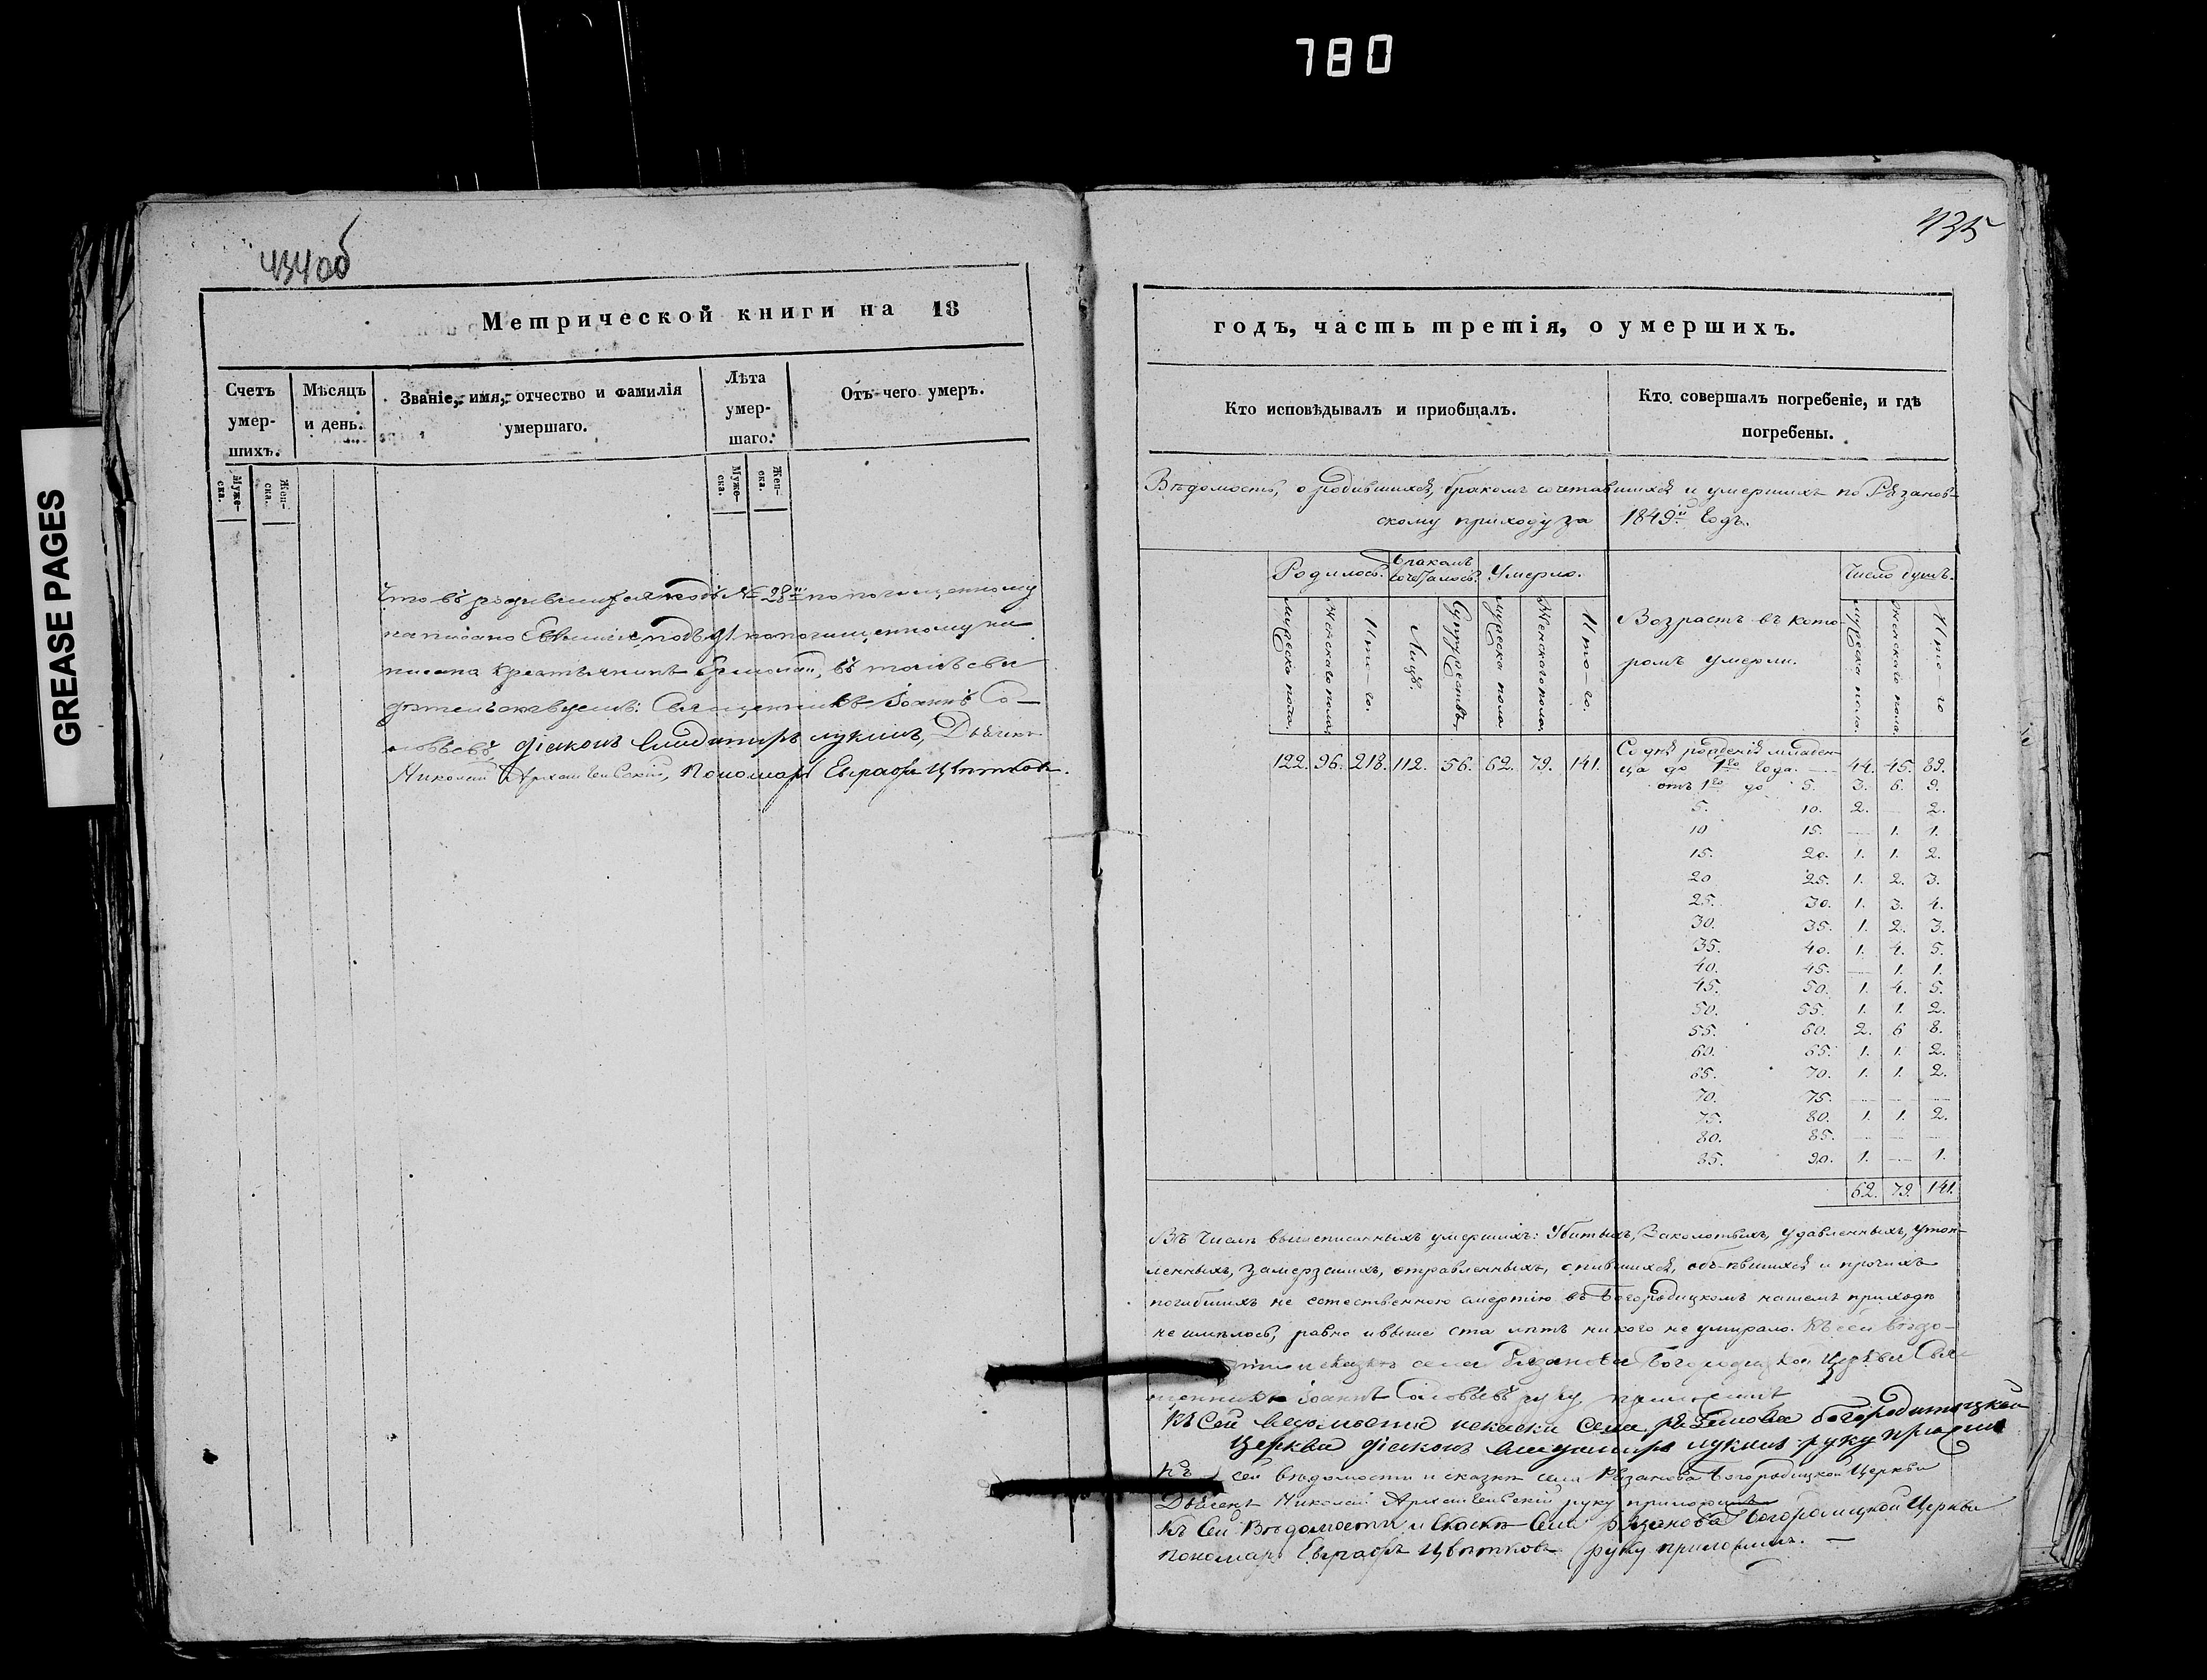 780
GREASE PAGES
434об
435
Метрической книги на 18
Счетъ умер-шихъ.
Мѣсяцъ и день.
Званіе, имя, отчество и фамилія умершаго.
Лѣта умер-шаго.
Отъ чего умеръ.
Муже-ска.
Жен-ска.
Муже-ска.
Жен-ска.
что въ родившихся подъ № 28 по почищенному
написано Евгенія, подъ 91 по почищенному на
писана крестьянинъ Ермолай, въ томъ сви
детельствуемъ: Священникъ Іоаннъ Со-
ловьевъ, діаконъ Владимиръ Лукинъ, Дьячекъ
Николай Архангельскій, Пономарь Евграфъ Цвѣтковъ.
годъ, часть третія, о умершихъ.
Кто исповѣдывалъ и пріобщалъ.
Кто совершалъ погребеніе, и гдѣ погребены.
Вѣдомость, о родившихся, бракомъ сочетавшихся и умершихъ по Рѣзанов-
скому приходу за 1849й годъ.
Родилось. Бракомъ сочеталось. Умерло. Возрастъ въ кото-ромъ умерли. Число душъ.
Мужеска пола. Женскаго пола. Ито-го. Лицъ. Супружествъ. Мужеска пола. Женскаго пола. Ито-го. Мужеска пола. Женскаго пола. Ито-го
122. 96. 218. 112. 56. 62. 79. 141.
Со дня рожденія младен-
ца до 1го года. 44. 45. 89.
отъ 1го до 5. 3. 6. 9.
5. 10. 2. 2.
10 15. — 1. 1.
15. 20. 1. 1. 2.
20 25. 1. 2. 3.
25. 30. 1. 3. 4.
30. 35. 1. 2. 3.
35. 40. 1. 4. 5.
40. 45. — 1. 1.
45. 50. 1. 4. 5.
50. 55. 1. 1. 2.
55. 60. 2. 6 8.
60. 65. 1. 1. 2.
65. 70. 1. 1. 2.
70. 75. — — —
75. 80. 1. 1. 2.
80. 85. — — —
85. 90. 1. — 1.
62. 79. 141.
Въ числѣ вышеписанныхъ умершихъ: Убитыхъ, Заколотыхъ, удавленныхъ, утоп-
ленныхъ, замерзшихъ, отравленныхъ, опившихся, объѣвшихся и прочихъ
погибшихъ не естественною смертію въ Богородицкомъ нашемъ приходѣ
не имѣлось, равно и выше ста лѣтъ никого не умирало. Къ сей вѣдо-
и сказкѣ села Рязанова Богородицкой Церкви Свя-
щенникъ Іоаннъ Соловьевъ руку приложилъ
Къ Сей ведомости и скаски Села Рѣзанова богородитцкой
Церкви діаконъ Владимиръ Лукинъ руку приложи
Къ сей вѣдомости и сказкѣ села Рѣзанова Богородицкой Церкви
Дьячекъ Николай Архангельскій руку приложилъ
Къ Сей Вѣдомости и Скаскѣ Села Рязанова Богородицкой Церкви
пономарь Евграфъ Цвѣтковъ руку приложилъ. —